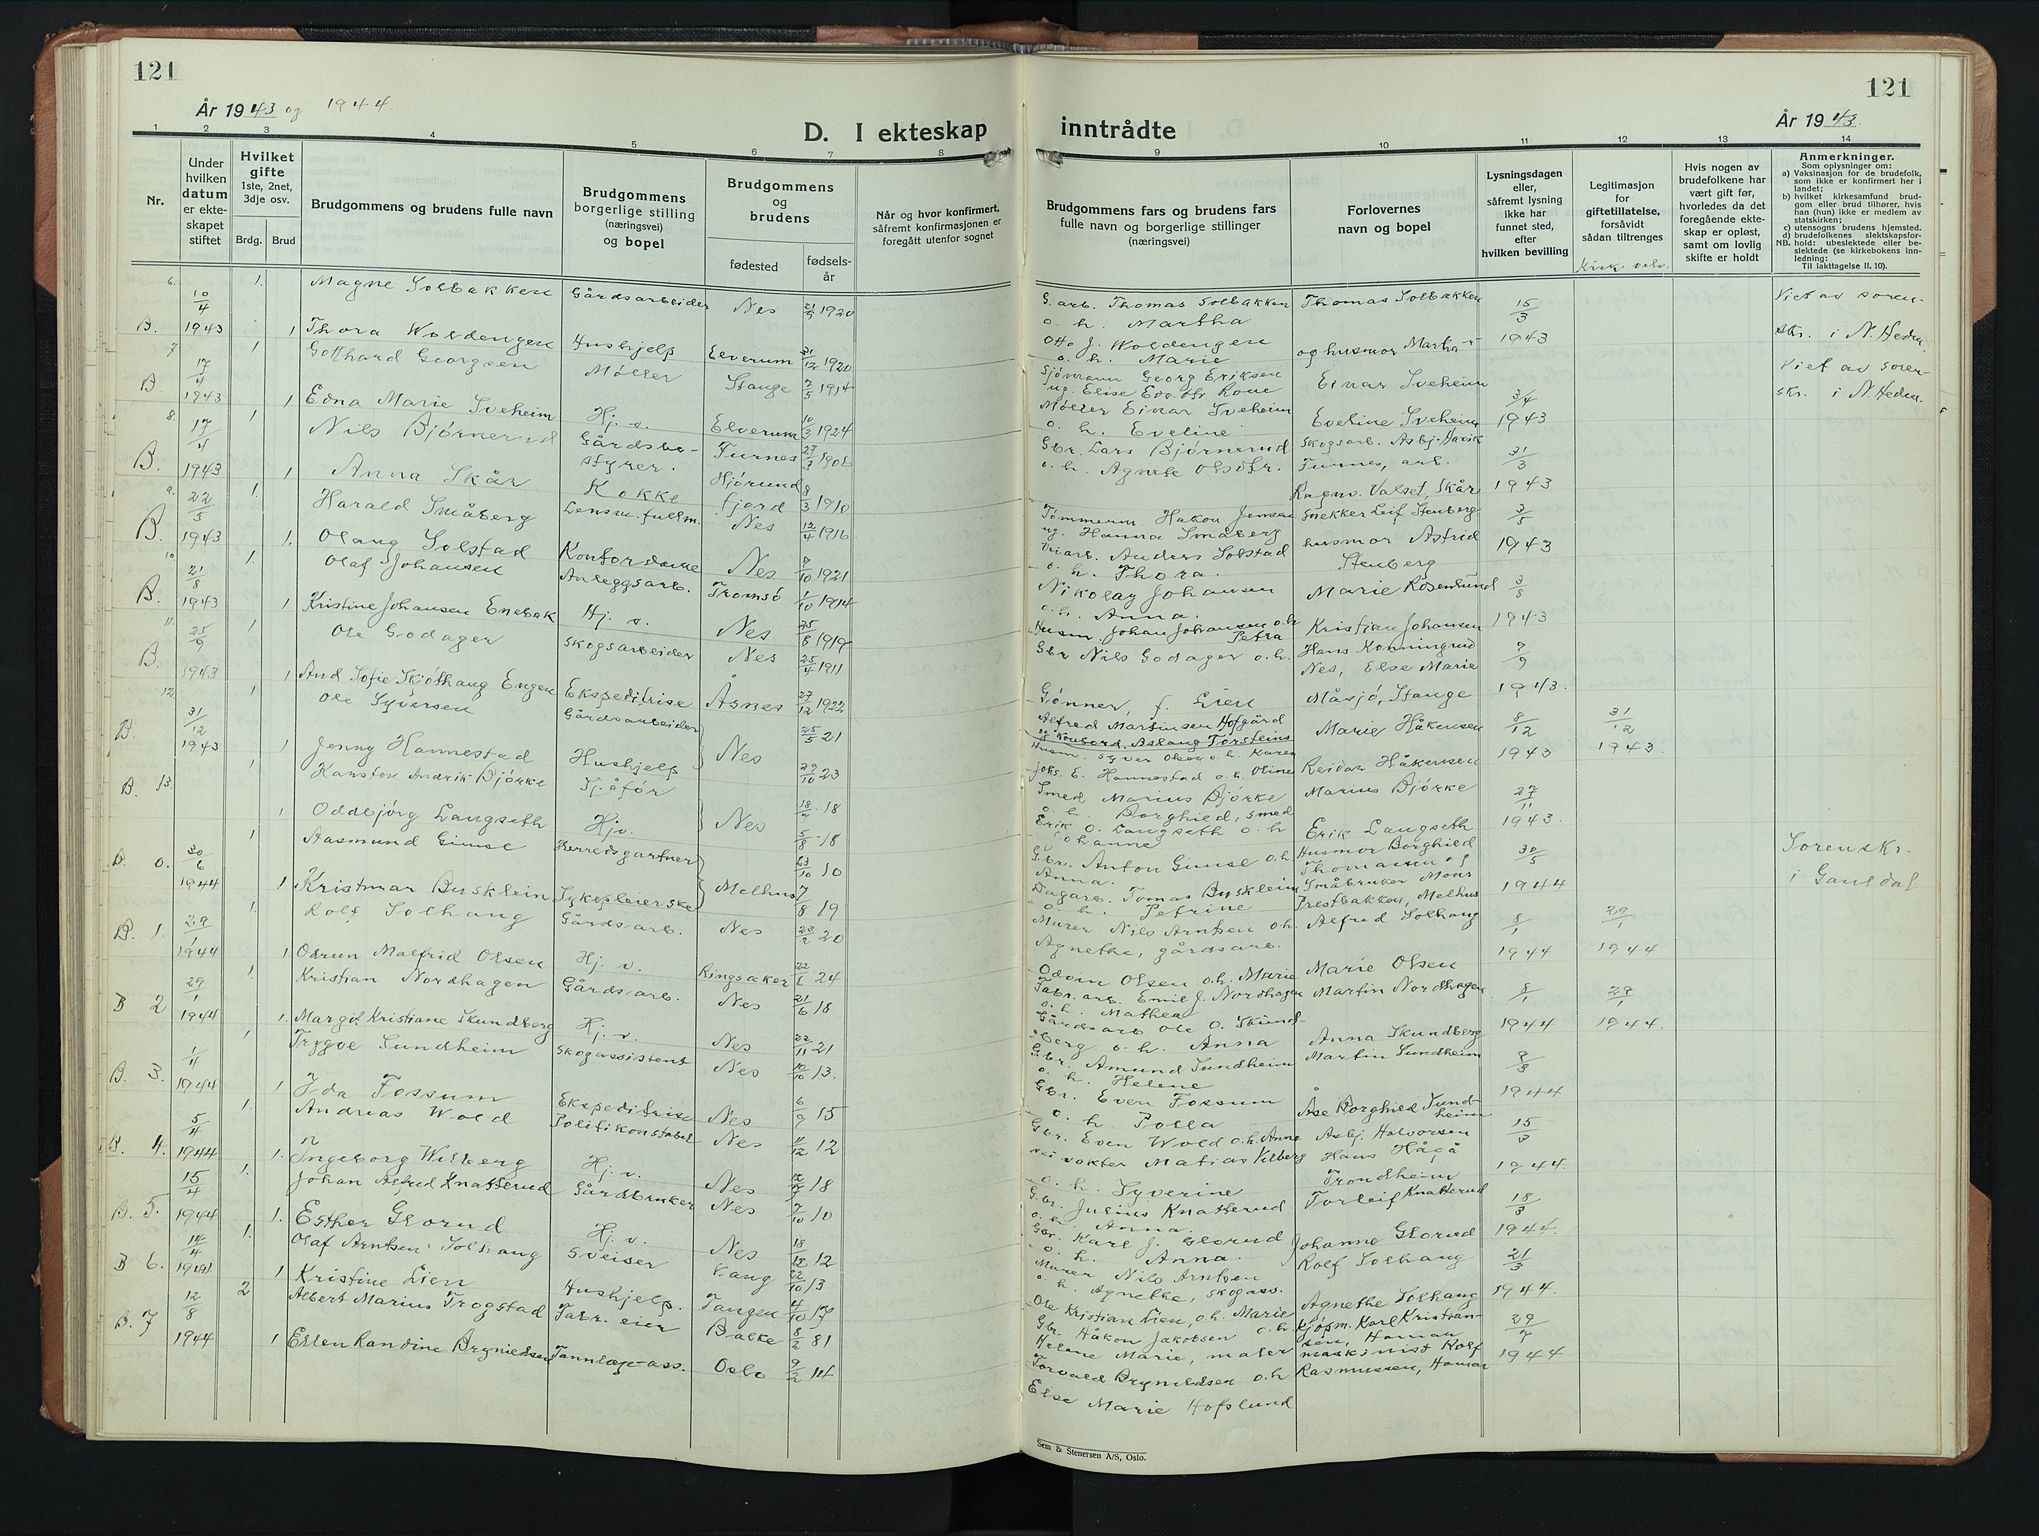 121
År 1943 og 1944.
D. I ekteskap
1 2 3 4 5 6 7 8
Nr.
Under hvilken datum er ekteskapet stiftet
Hvilket gifte
1ste, 2net, 3dje osv.
Brdg. Brud
Brudgommens og brudens fulle navn
Brudgommens borgerlige stilling (næringsvei) og bopel
Brudgommens og brudens
fødested
fødsels-år
Når og hvor konfirmert, såfremt konfirmasjonen er foregått utenfor sognet
6. 1. Magne Solbakken Gårdsarbeider Nes 21/9 1920
10/4
B. 1943 1 Thora Woldengen Hushjelp Elverum 31/12 1920
7 1 Gotthard Georgsen Møller Stange 7/5 1914
17/4
B 1943 1 Edna Marie Sveheim Hj. v. Elverum 10/3 1924
8. 1 Nils Bjørnerud Gårdsbe-
17/4 styrer. Furnes 27/7 1906
B. 1943 1 Anna Skår Kokke Hjørund
fjord 8/3 1910
9. 1. Harald Småberg Lensm. fullm. Nes 12/4 1916
22/5
B. 1943 1. Olaug Solstad Kontordame Nes 7/10 1921
10. 1. Olaf Johansen Anleggsarb. Tromsö 1/10 1914
21/8
B. 1943 1 Kristine Johansen Enebak Hj. v. Nes 25/8 1919
11. 1 Ole Godager Skogsarbeider Nes 25/4 1911
25/9
B. 1943 1 Aud Sofie Skjøthaug Engen Ekspeditrise Åsnes 27/12 1922
12. 1 Ole Syversen Gårdsarbeider 25/5 21
31/12
B. 1943 1 Jenny Hannestad Hushjelp Nes 29/10 23
B. 13. 1 Karsten Andrik Bjørke Sjåfør 18/7 - 18
1 Oddbjørg Langseth Hj.v. Nes 5/8 - 18
B 0. 1 Aasmund Gimse Herredsgartner 23/10 10
30/6
1944 1 Kristmar Busklein Sykepleierske Melhus 7/8 19
B 1. 1. Rolf Solhaug Gårdsarb. Nes 23/2 20
29/1
1944 1 Odrun Malfrid Olsen Hj. v. Ringsaker 22/6 24
B 2 1 Kristian Nordhagen Gårdsarb. Nes 21/6 18
29/1
1944 1. Margit Kristiane Skundberg Hj. v. Nes 22/11 21
B. 3. 1 Trygve Sundheim Skogassistent Nes 10/10 13.
1/4
1944 1 Ida Fossum Ekspeditrise Nes 6/9 15
B. 4. 1. Andreas Wold Politikonstabel Nes 11/12 12
5/4
1944 1. Ingeborg Wilberg Hj. v. Nes 12/7 18
B. 5. 1. Johan Alfred Knatterud Gårdbruker Nes 7/10 10
15/4
1944 1. Esther Glorud Hj. v. Nes 18/12 12
B 6. 1. Olaf Arntsen Solhaug Sveiser Vang 22/10 13
14/4
1944 1 Kristine Lien Hushjelp. Tangen 4/10 17
B. 7 2 Albert Marius Trogstad Fabr. eier Balke 8/2 81
12/8
1944 1 Ellen Randine Brynildsen Tannlege-ass. Oslo 9/2 14
inntrådte
121
År 1943.
9 10 11 12 13 14
Brudgommens fars og brudens fars fulle navn og borgerlige stillinger (næringsvei)
Forlovernes navn og bopel
Lysningsdagen eller, såfremt lysning ikke har funnet sted, efter hvilken bevilling
Legitimasjon for giftetillatelse, forsåvidt sådan tiltrenges
Hvis nogen av brudefolkene har vært gift før, hvorledes da det foregående ekteskap er opløst, samt om lovlig skifte er holdt
Anmerkninger.
Som oplysninger om:
a) Vaksinasjon for de brudefolk, som ikke er konfirmert her i landet;
b) hvilket kirkesamfund brudgom eller brud tilhører, hvis han (hun) ikke er medlem av statskirken;
c) utensogns brudens hjemsted.
d) brudefolkenes slektskapsforhold: ubeslektede eller beslektede (se kirkebokens innledning:
NB.
Til iakttagelse II. 10).
G.arb. Thomas Solbakken Thomas Solbakken 15/3 Viet av soren-
o. h. Martha
Otto J. Woldengen og husmor Martha 1943 skr. i N. Hedm.
o. h. Marie
Sjömann Georg Eriksen Einar Sveheim Viet av soren-
Møller Einar Sveheim 3/4 skr. i N. Hedm.
o. h. Eveline Eveline Sveheim 1943
Gbr. Lars Bjørnerud Skogsarb. Asbj. Havik
o. h. Agnete Olsdtr. Furnes, arb. 31/3
Ragnv. Valset, Skår 1943
Tömmerm Hakon Jensen Snekker Leif Stenberg 3/5
ug. Hanna Småberg husmor Astrid
Veiarb. Anders Solstad Stenberg 1943
o. h. Thora.
Nikolay Johansen Marie Rosenlund 3/8
o. h. Anna.
Husm. Johan Johansen o.h. Petra Kristian Johansen 1943
Gbr Nils Godager o.h. Hans Konningrud 9/9
Nes, Else Marie
Gønner, f. Lien Måsjö, Stange 1943.
Alfred Martinsen Hofgård Marie Håkensen 8/12 31/12
Husm. Syver Olsen o. h. Karen Reidar Håkensen 1943 1943.
Johs. E. Hannestad o.h. Oline
Smed Marius Bjørke Marius Bjørke 27/11
o. h. Borghild, smed
Erik O. Langseth o.h. Erik Langseth 1943.
Johanne
Gbr. Anton Gimse o.h. Husmor Borghild 30/5 Sorenskr.
Anna. Thomassen
Dagarb. Tomas Busklein Småbruker Mons 1944 i Gausdal
o. h. Petrine Prestbakken, Melhus
Murer Nils Arntsen o.h. Alfred Solhaug 8/1 29/1
Agnethe, gårdsarb. 1944 1944
Odvin Olsen o.h. Marie Marie Olsen
Fabr. arb. Emil J. Nordhagen Martin Nordhagen 8/1 29/1
o. h. Mathea
Gårdsarb Ole O. Skund-
berg o. h. Anna Anna Skundberg 1944 1944.
Gbr. Amund Sundheim Martin Sundheim 9/3
o. h. Helene
Gbr. Even Fossum Åse Borghild Sund- 1944
o. h. Polla heim
Gbr. Even Wold o.h. Anne Asbj. Halvorsen 15/3
Veivokter Matias Vilberg Hans Hågå
o. h. Syverine Trondheim 1944.
Gbr. Julius Knatterud Torleif Knatterud 18/3
o. h. Anna.
Gbr. Karl J. Glorud Johanne Glorud 1944.
o. h. Anna.
Murer Nils Arntsen Rolf Solhaug 21/3
o. h. Agnethe, skogass.
Ole Kristian Lien, o.h. Marie Agnethe Solhaug 1944.
Gbr. Håkon Jakobsen o.h. Kjøpm. Karl Kristian- 29/7
Helene Marie, maler sen, Hamar
Torvald Brynildsen o.h. maskinist Rolf 1944
Else Marie Hofslund Rasmussen, Hamar
Sem & Stenersen A/S, Oslo.